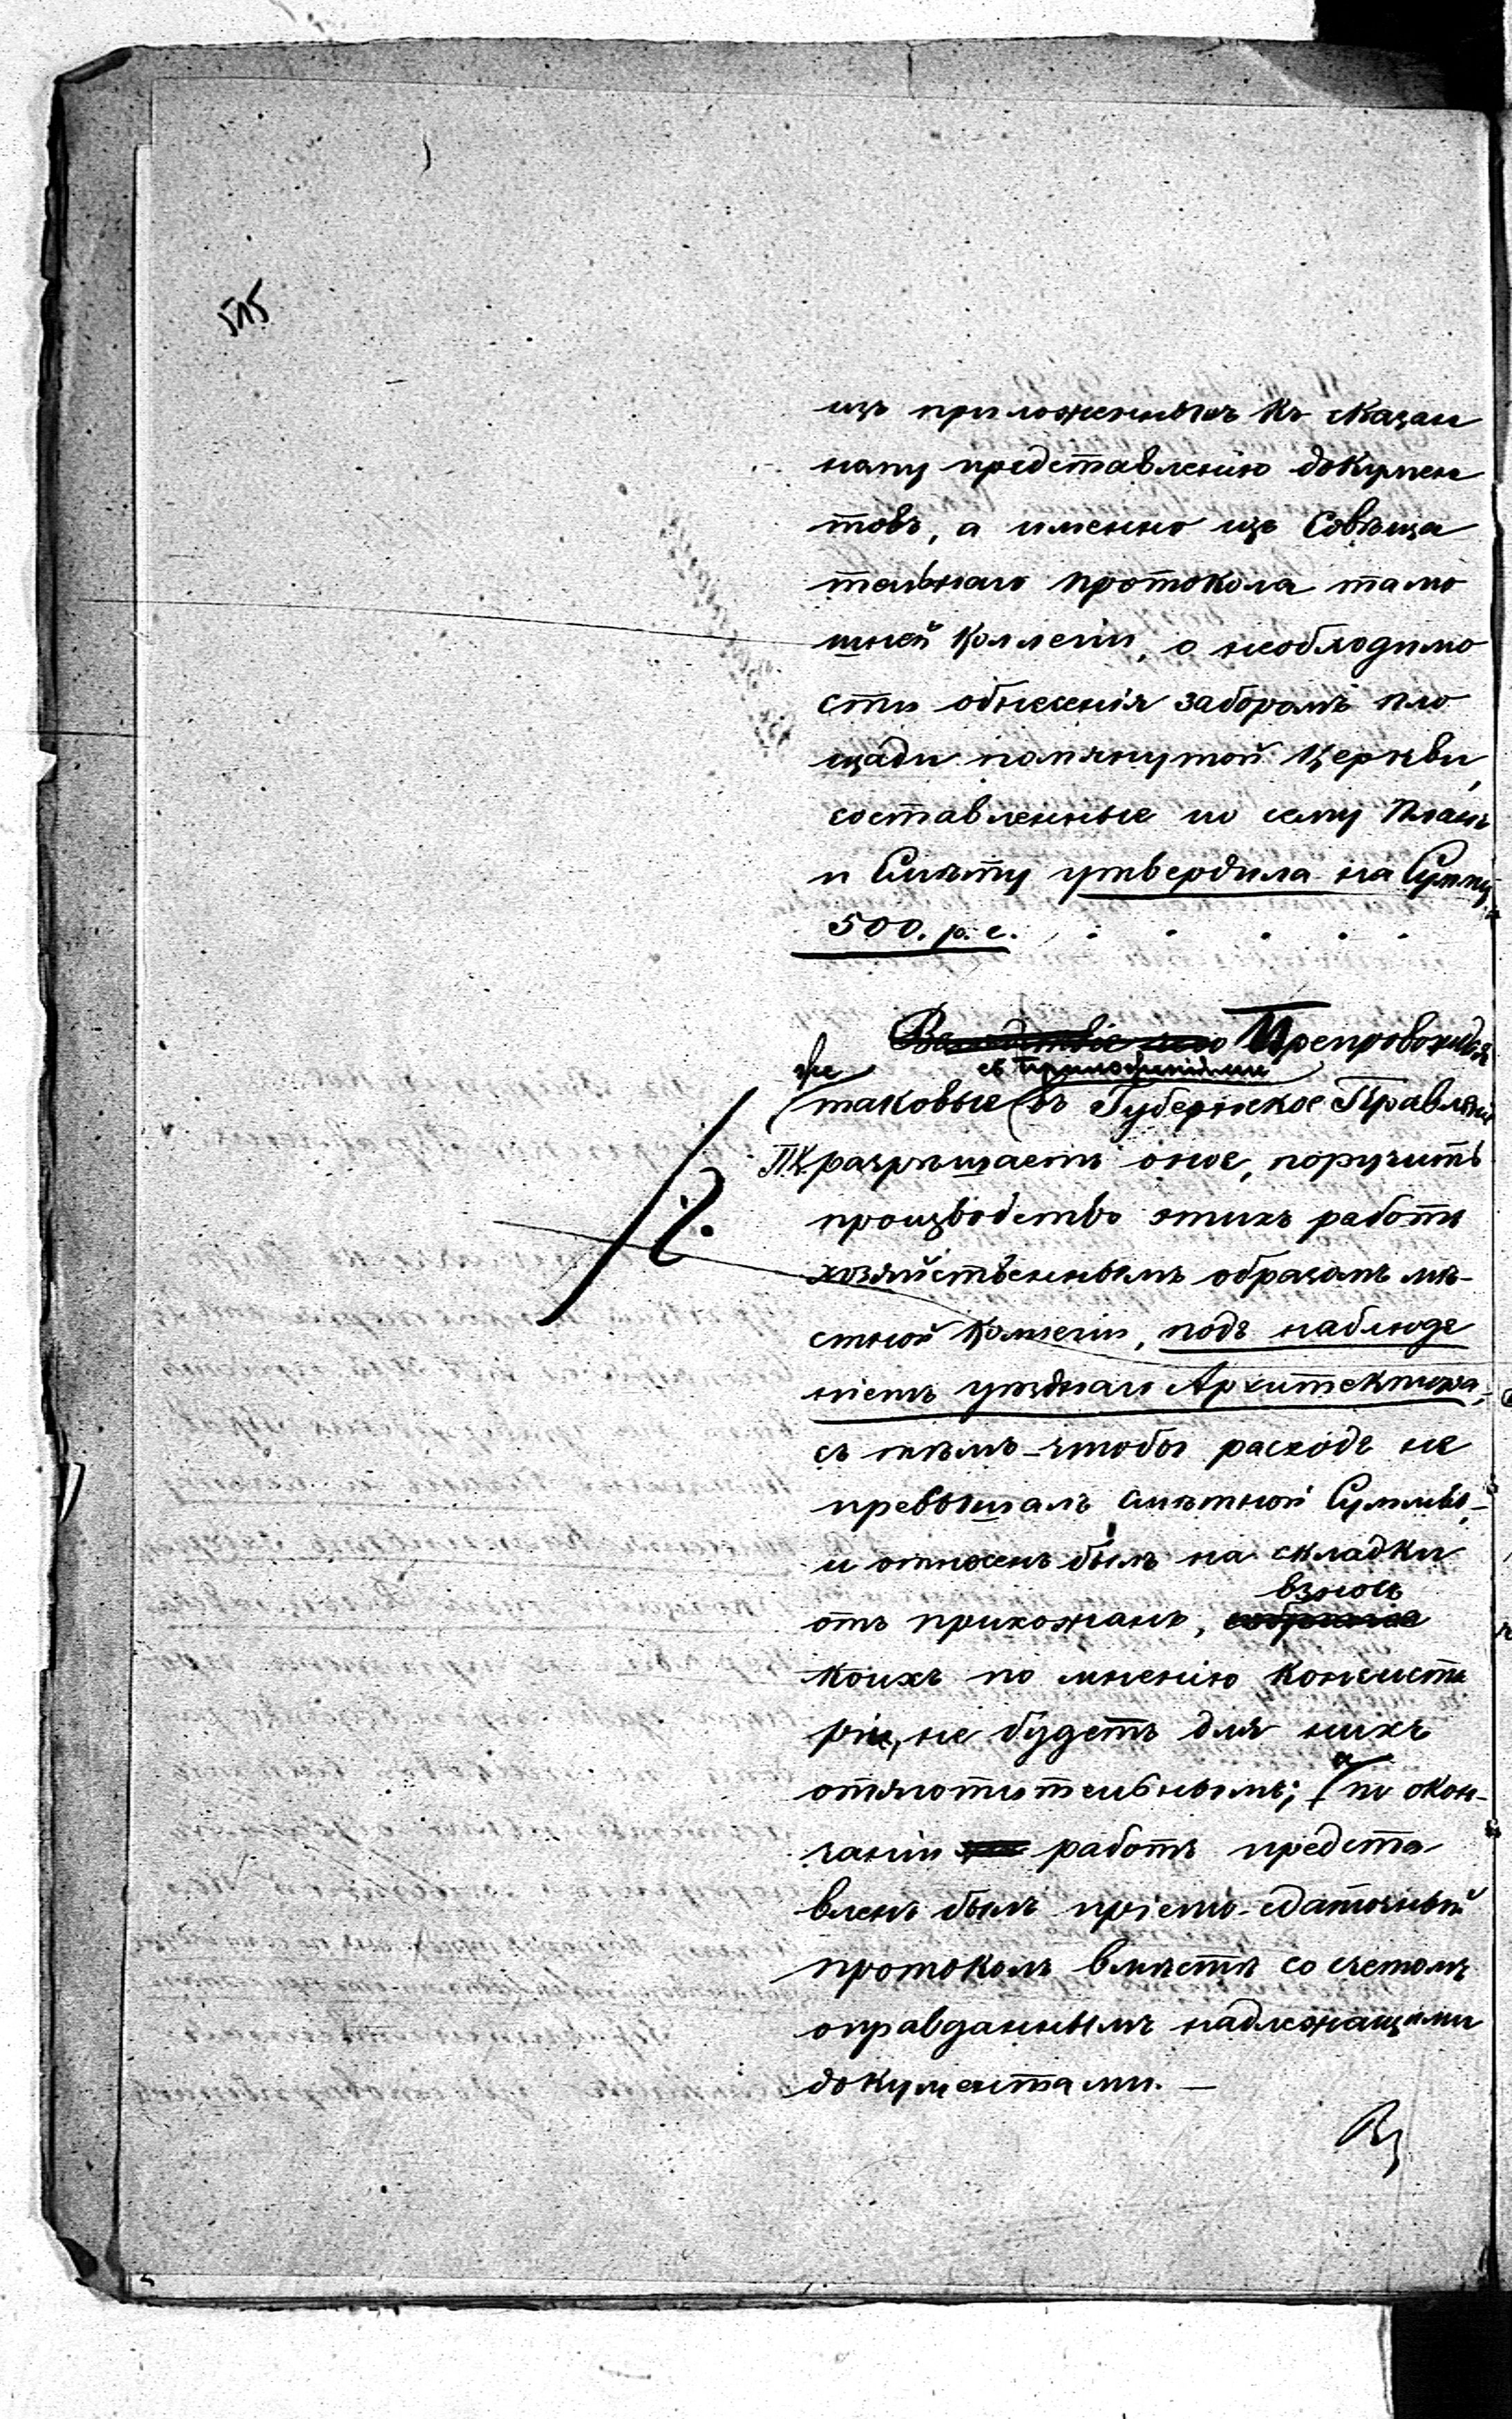 515
изъ приложенныхъ къ сказан
ному представленію докумен
товъ, а именно изъ Совѣща
тельнаго протокола тамо
шней Коллегіи, о необходимо
сти обнесенія заборомъ пло
щади помянутой Церкви,
составленные по сему Планъ
и Смѣту утвердила на Сумму
500. р. с.
Вслѣдствіе чего Препровождая
же съ приложеніями
таковые въ Губернское Правленіе
П.К. разрѣшаетъ оное, поручить
производство этихъ работъ
хозяйственнымъ образомъ мѣ-
стной Коллегіи, подъ наблюде
ніемъ уѣзднаго Архитектора,
съ тѣмъ чтобы расходъ не
превышалъ смѣтной Суммы,
и отнесенъ былъ на складки
взносъ
отъ прихожанъ,
коихъ по мнѣнію Консисто
ріи, не будетъ для нихъ
отяготительнымъ; а по окон-
чаніи работъ предста
вленъ былъ пріемо-сдаточный
протоколъ вмѣстѣ со счетомъ
оправданнымъ надлежащими
документами. —